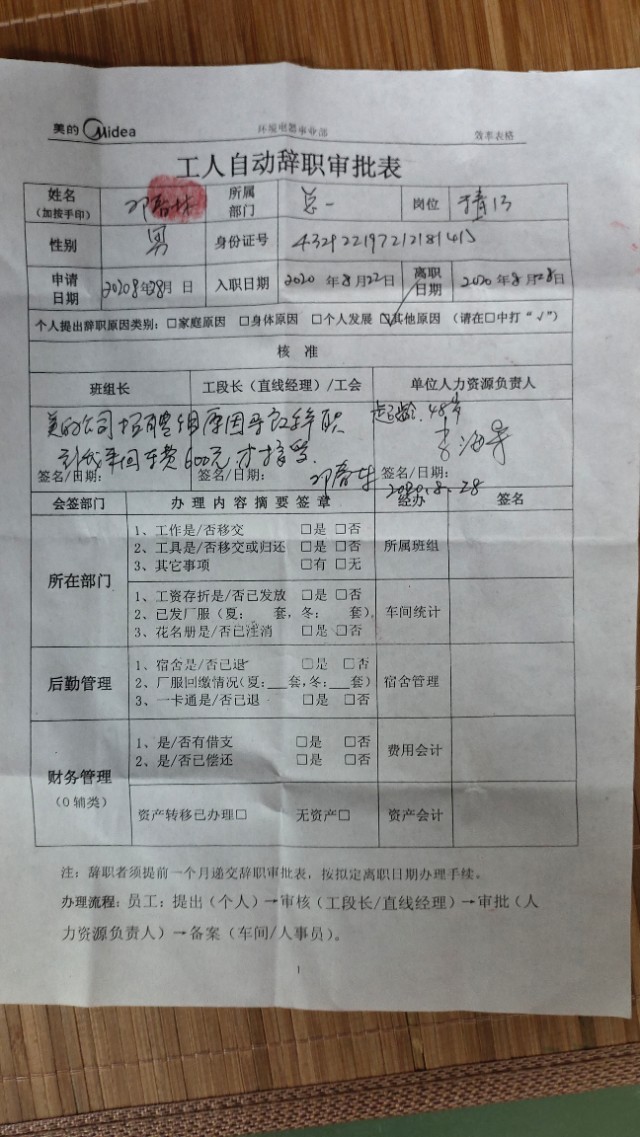 美的 Midea 环境电器事业部 效率表格
工人自动辞职审批表
姓名 (加按手印) 邓春林 所属部门 总一 岗位
性别 男 身份证号
申请日期 2020 8年28月 日 入职日期 2020 年 8 月 22 日 离职日期 2020 年 8 月 28 日
个人提出辞职原因类别:□家庭原因 □身体原因 □个人发展 ☑其他原因 (请在□中打“√”)
核 准
班组长 工段长(直线经理)/工会 单位人力资源负责人
美的公司招聘组原因 辞职 超龄.48岁
车费600元才接受.
签名/日期: 签名/日期: 签名/日期:
2020.8.28
会签部门 办 理 内 容 摘 要 签 章 经办 签名
所在部门
1、工作是/否移交 □是 □否
2、工具是/否移交或归还 □是 □否
3、其它事项 □有 □无
所属班组
1、工资存折是/否已发放 □是 □否
2、已发厂服(夏: 套,冬: 套)
3、花名册是/否已注消 □是 □否
车间统计
后勤管理
1、宿舍是/否已退 □是 □否
2、厂服回缴情况(夏:___套,冬:___套)
3、一卡通是/否已退 □是 □否
宿舍管理
财务管理
(0 辅类)
1、是/否有借支 □是 □否
2、是/否已偿还 □是 □否
费用会计
资产转移已办理□ 无资产□ 资产会计
注:辞职者须提前一个月递交辞职审批表,按拟定离职日期办理手续。
办理流程:员工:提出(个人)→审核(工段长/直线经理)→审批(人
力资源负责人)→备案(车间/人事员)。
1